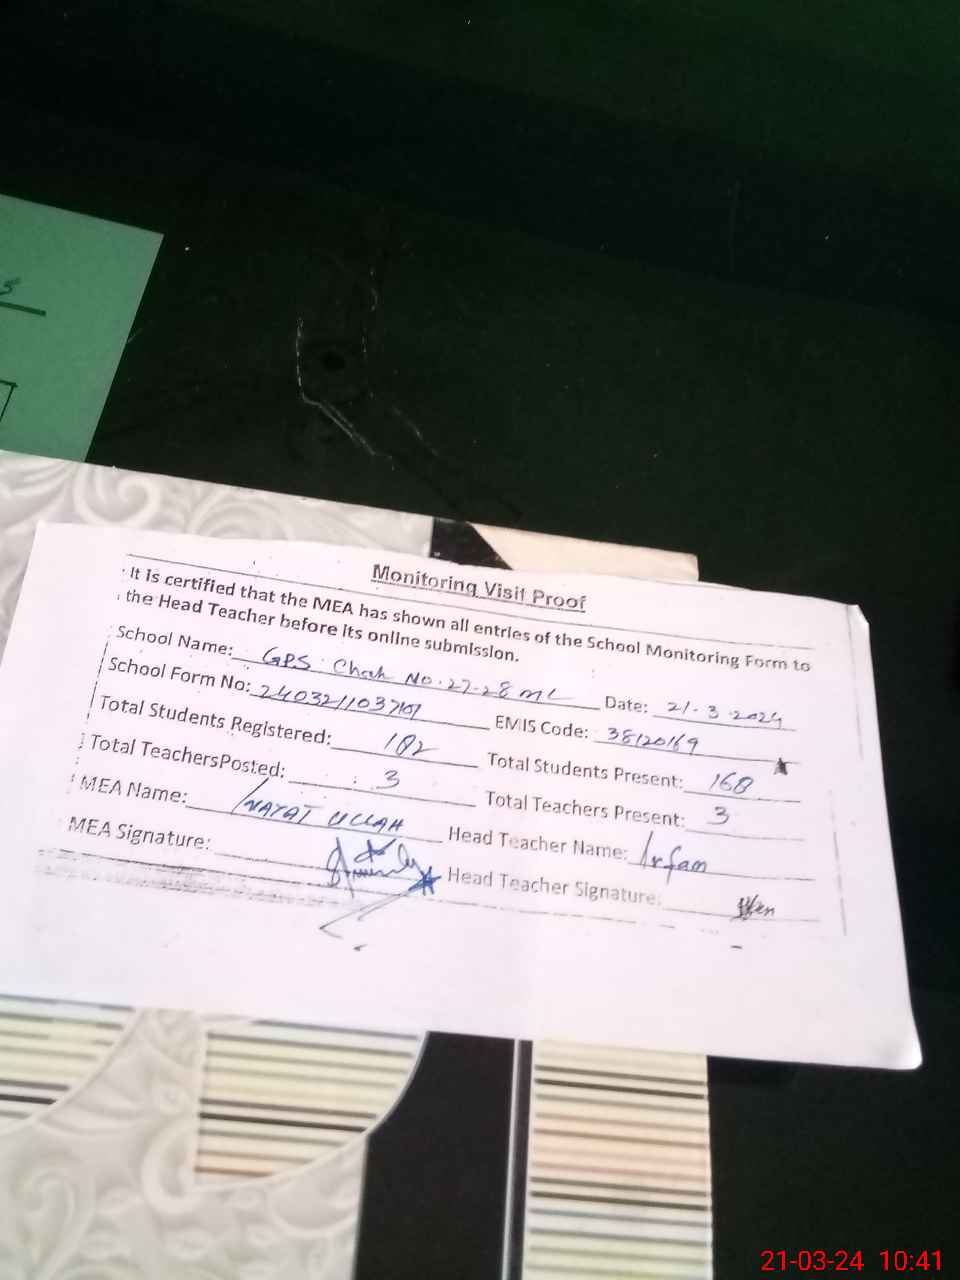 Monitoring Visit Proof
It is certified that the MEA has shown all entries of the School Monitoring Form to
the Head Teacher before its online submission.
School Name: GPS Chak No. 27-28 ML Date: 21-3-2024
School Form No: EMIS Code: 38120169
Total Students Registered: 182 Total Students Present: 168
Total TeachersPosted: 3 Total Teachers Present: 3
MEA Name: INAYAT ULLAH Head Teacher Name: Irfan
MEA Signature: Head Teacher Signature:
21-03-24 10:41